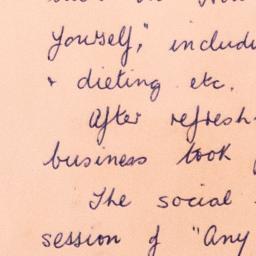 Yourself," includi
& dieting etc.
After refresh
business took
The social
session of "Any